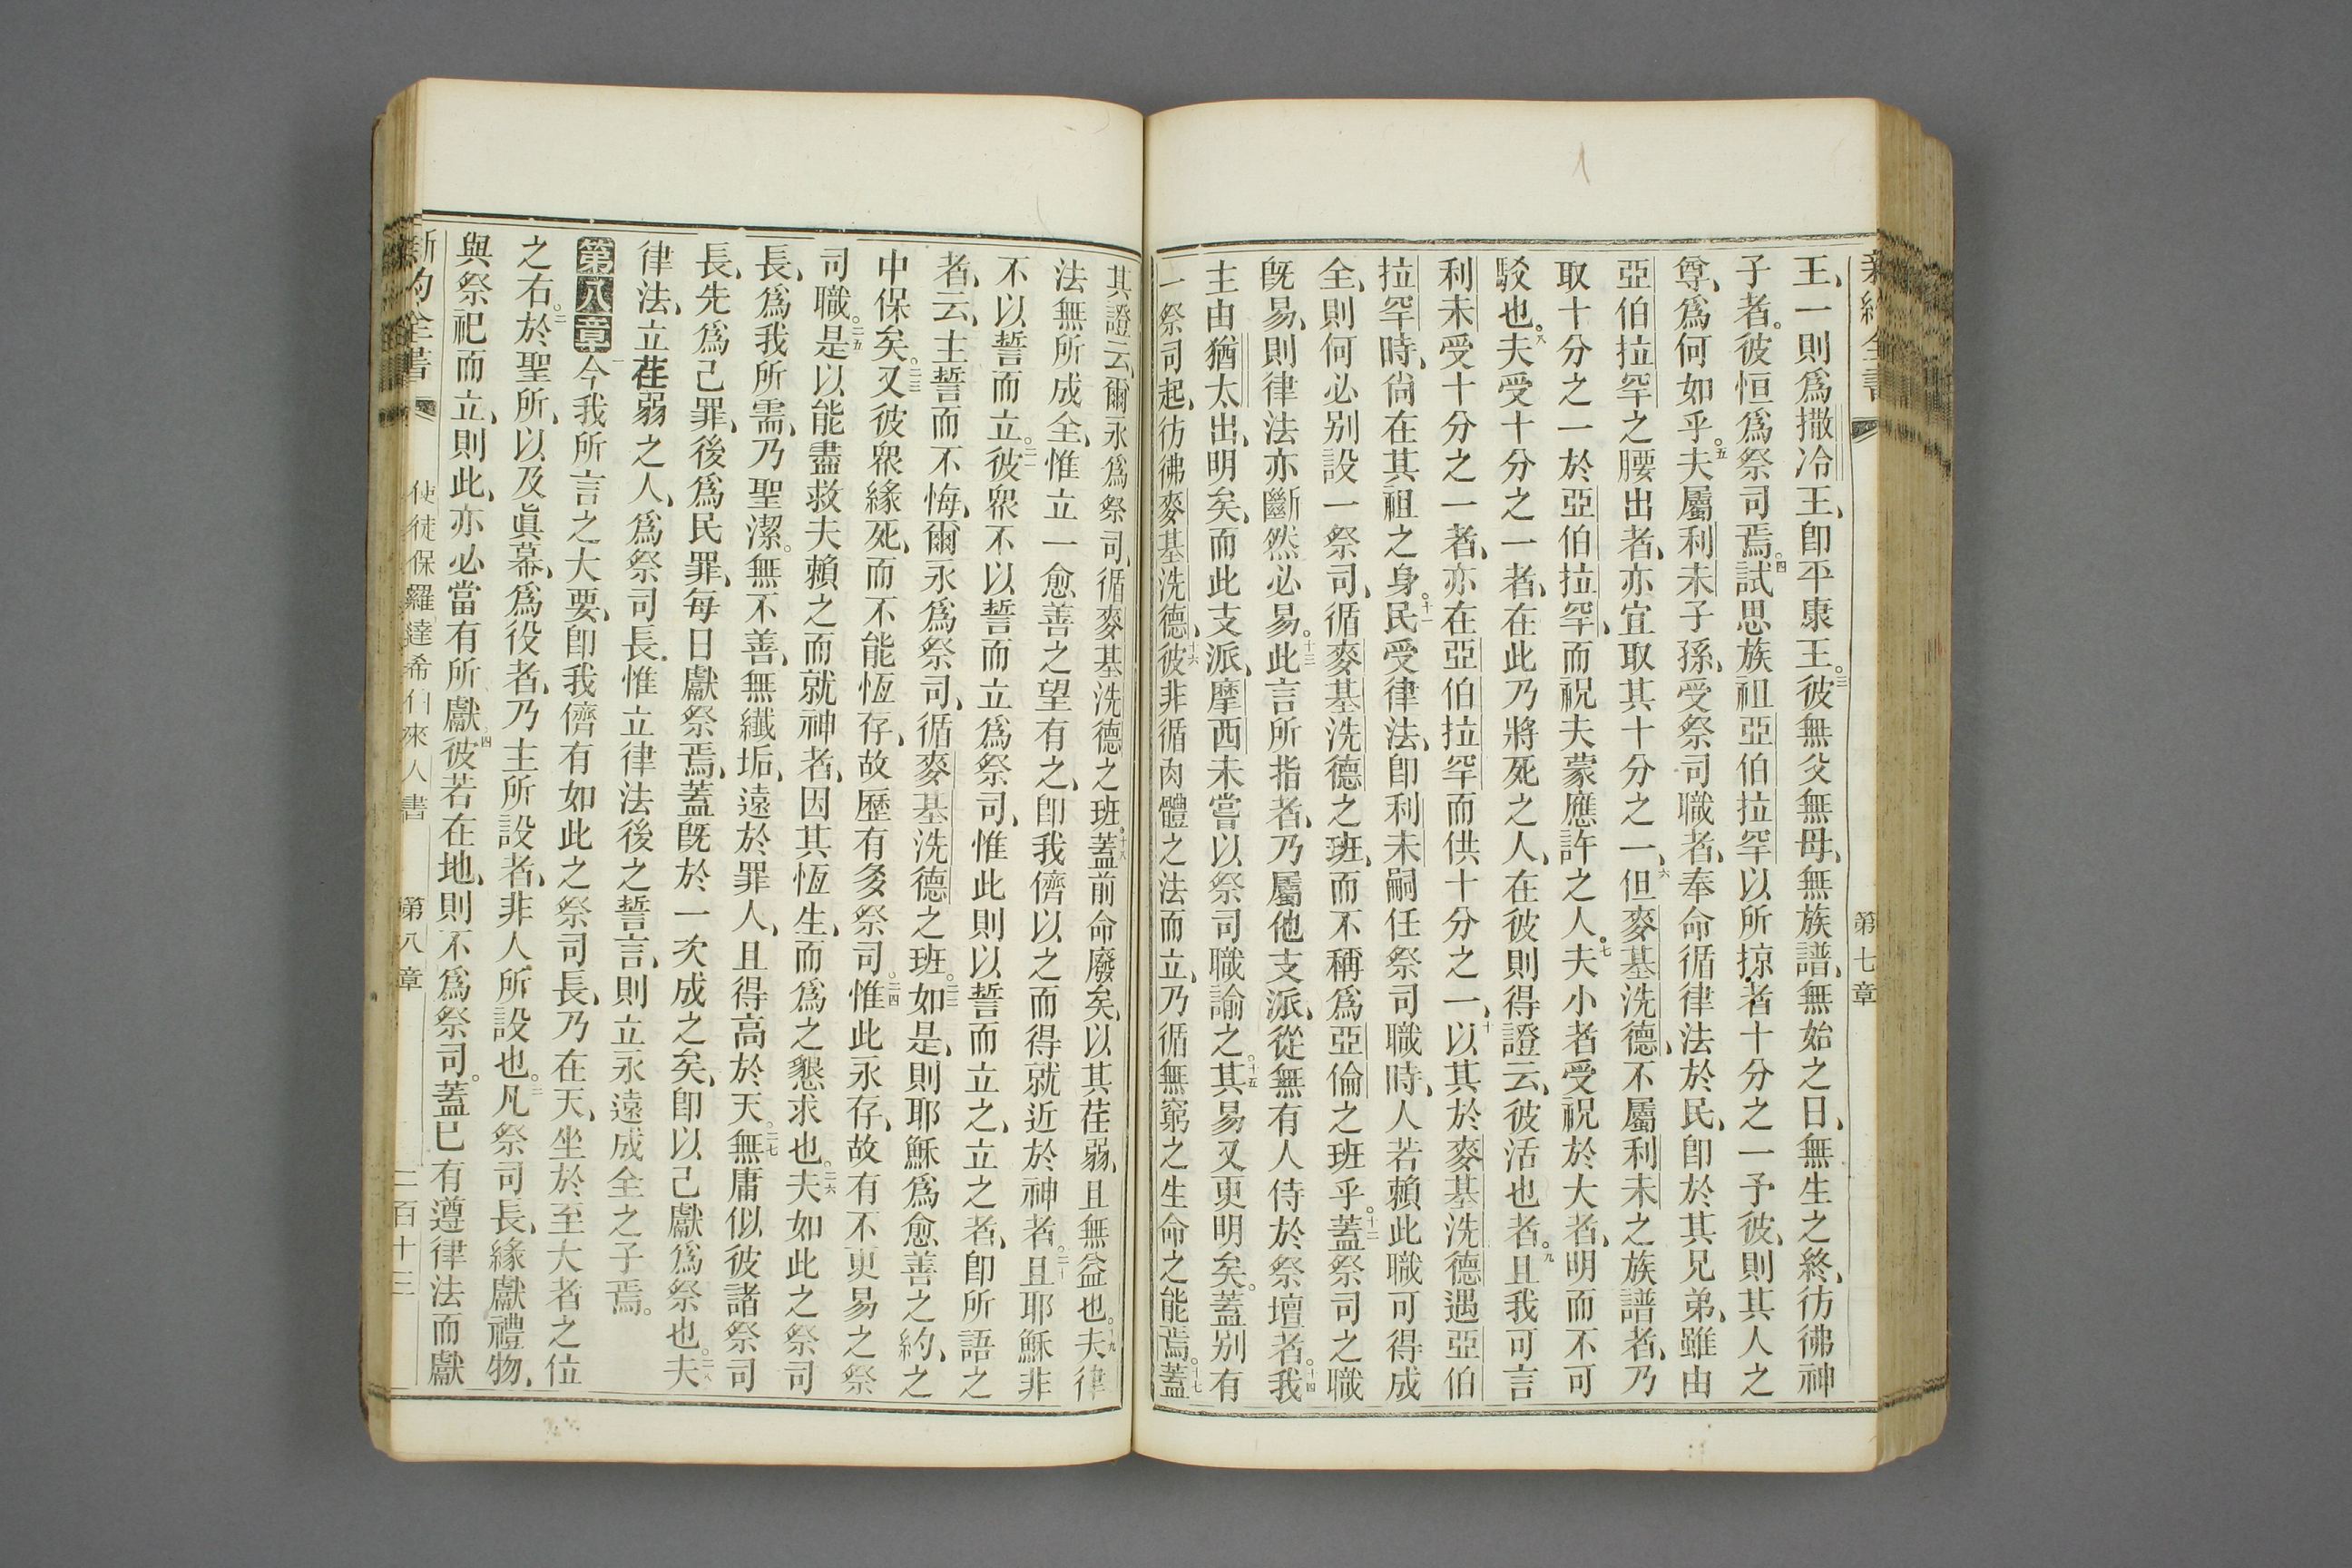 新約全書 第七章
王、一則爲撒冷王、卽平康王。三彼無父無母、無族譜、無始之日、無生之終、彷彿神
子者。彼恒爲祭司焉。四試思族祖亞伯拉罕以所掠者十分之一予彼、則其人之
尊、爲何如乎。五夫屬利未子孫、受祭司職者、奉命循律法於民、卽於其兄弟、雖由
亞伯拉罕之腰出者、亦宜取其十分之一、六但麥基洗德、不屬利未之族譜者、乃
取十分之一於亞伯拉罕、而祝夫蒙應許之人。七夫小者受祝於大者、明而不可
駁也。八夫受十分之一者、在此乃將死之人、在彼則得證云、彼活也者。九且我可言
利未受十分之一者、亦在亞伯拉罕而供十分之一、十以其於麥基洗德遇亞伯
拉罕時、尙在其祖之身。十一民受律法、卽利未嗣任祭司職時、人若賴此職可得成
全、則何必別設一祭司、循麥基洗德之班、而不稱爲亞倫之班乎。十二蓋祭司之職
旣易、則律法亦斷然必易。十三此言所指者、乃屬他支派、從無有人侍於祭壇者。十四我
主由猶太出、明矣、而此支派、摩西未嘗以祭司職諭之。十五其易又更明矣。蓋別有
一祭司起、彷彿麥基洗德、十六彼非循肉體之法而立、乃循無窮之生命之能焉。十七蓋
其證云、爾永爲祭司、循麥基洗德之班。十八蓋前命廢矣、以其荏弱、且無益也。十九夫律
法無所成全、惟立一愈善之望有之、卽我儕以之而得就近於神者。二十且耶穌非
不以誓而立。二一彼眾不以誓而立爲祭司、惟此則以誓而立之、立之者、卽所語之
者、云、主誓而不悔、爾永爲祭司、循麥基洗德之班。二二如是、則耶穌爲愈善之約、之
中保矣。二三又彼眾緣死、而不能恆存、故歷有多祭司。二四惟此永存、故有不更易之祭
司職。二五是以能盡救夫賴之而就神者、因其恆生、而爲之懇求也。二六夫如此之祭司
長、爲我所需、乃聖潔。無不善、無纖垢、遠於罪人、且得高於天。二七無庸似彼諸祭司
長、先爲己罪、後爲民罪、每日獻祭焉、蓋旣於一次成之矣、卽以己獻爲祭也。二八夫
律法、立荏弱之人、爲祭司長。惟立律法後之誓言、則立永遠成全之子焉。
第八章 一今我所言之大要、卽我儕有如此之祭司長、乃在天、坐於至大者之位
之右。二於聖所、以及眞幕、爲役者、乃主所設者、非人所設也。三凡祭司長、緣獻禮物、
與祭祀而立、則此、亦必當有所獻。四彼若在地、則不爲祭司。蓋已有遵律法而獻
新約全書 使徒保羅達希伯來人書 第八章 二百十三